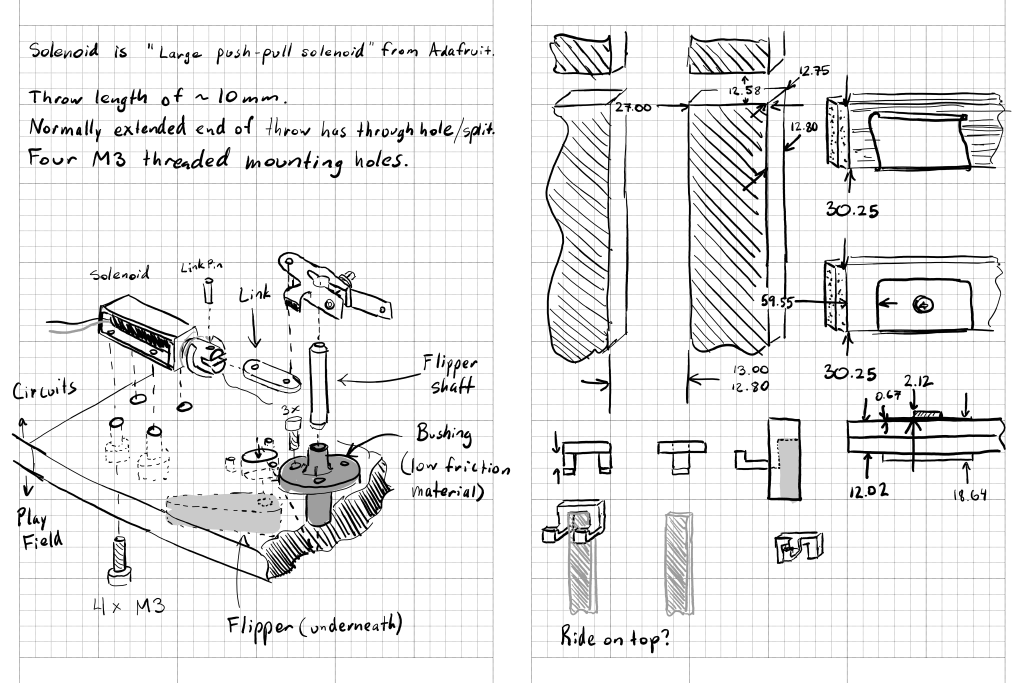 Solenoid is "Large push-pull solenoid" from Adafruit.
Throw length of ~10mm.
Normally extended end of throw has through hole/split.
Four M3 threaded mounting holes.
Solenoid
Link Pin
Link
Flipper
shaft
Circuits
3x
Bushing
(low friction
material)
Play
Field
4x M3
Flipper (underneath)
12.75
12.58
27.00
12.80
30.25
59.55
13.00
12.80
30.25
2.12
0.67
12.02
18.64
Ride on top?